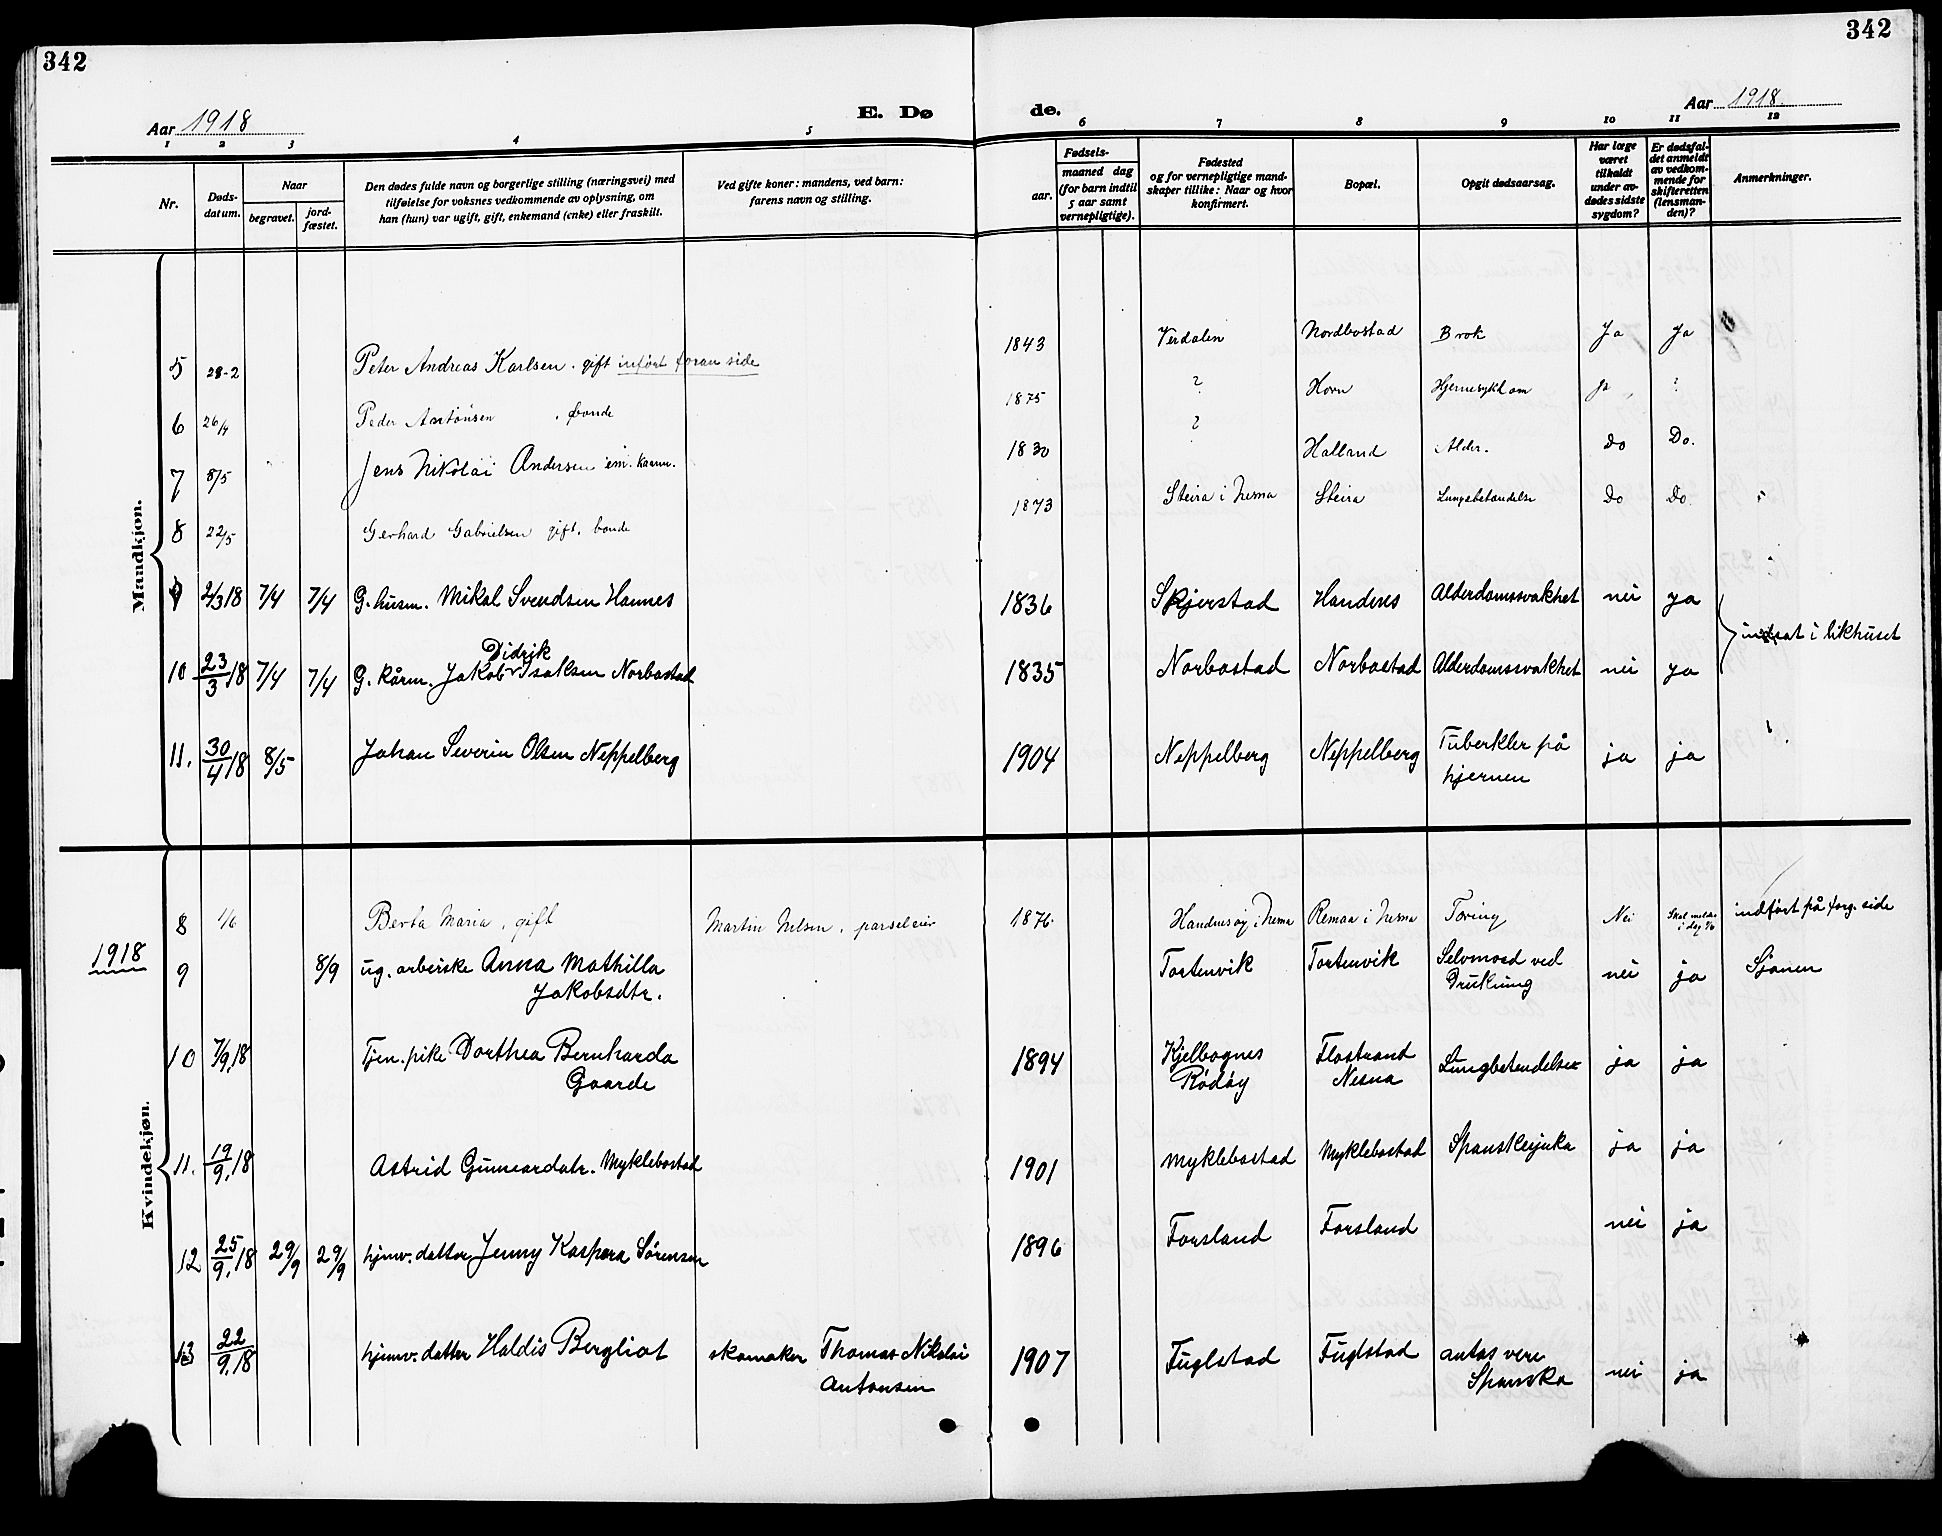 342
342
Aar 1918
E. Dø
de.
Aar 1918.
1 2 3 4 5 6 7 8 9 10 11 12
Nr.
Døds-
datum.
Naar
begravet.
jord-
fæstet.
Den dødes fulde navn og borgerlige stilling (næringsvei) med
tilføielse for voksnes vedkommende av oplysning, om
han (hun) var ugift, gift, enkemand (enke) eller fraskilt.
Ved gifte koner: mandens, ved barn:
farens navn og stilling.
Fødsels-
aar.
maaned dag
(for barn indtil
5 aar samt
vernepligtige).
Fødested
og for vernepligtige mand-
skaper tillike: Naar og hvor
konfirmert.
Bopæl.
Opgit dødsaarsag.
Har læge
været
tilkaldt
under av-
dødes sidste
sygdom?
Er dødsfal-
det anmeldt
av vedkom-
mende for
skifteretten
(lensman-
den)?
Anmerkninger.
Mandkjøn.
5 28-2 Peter Andreas Karlsen. gift inført foran side 1843 Verdalen Nordbostad Brok Ja Ja
6 26/4 Peder Antonsen . bonde 1875 ? Horn Hjernesykdom ja ?
7 8/5 Jens Nikolai Andersen em. kaarm. 1830 ? Halland Alder. Do Do.
8 22/5 Gerhard Gabrielsen gift. bonde 1873 Steira i Nesna Steira Lungebetændelse Do Do
9 2/3 18 7/4 7/4 G. husm. Mikal Svendsen Hannes 1836 Skjerstad Handnes Alderdomssvakhet nei ja
indsat i likhuset
10 23/3 18 7/4 7/4 G. kårm. Jakob Didrik Isaksen Norbostad 1835 Norbostad Norbostad Alderdomssvakhet nei ja
11. 30/4 18 8/5 Johan Severin Olsen Neppelberg 1904 Neppelberg Neppelberg Tuberkler på
hjernen ja ja
Kvindekjøn.
8 1/6 Berta Maria, gift Martin Nelsen, parseleier 1876 Handnesøy i Nesna Remaa i Nesna Tæring Nei Skal meldes
i dag 3/6 indført på forg. side
1918
9 8/9 ug. arbeiske Anna Mathilla
Jakobsdtr. Tortenvik Tortenvik Selvmord ved
Drukning nei ja Sjonen
10 7/9.18 Tjen. pike Dorthea Bernharda
Gaarde 1894 Kjelbognes
Rødøy Flostrand
Nesna Lungbetendelse ja ja
11. 19/9.18 Astrid Gunnardatr. Myklebostad 1901 Myklebostad Myklebostad Spanskesjuka ja ja
12 25/9.18 29/9 29/9 hjemv. datter Jenny Kaspara Sørensen 1896 Forsland Forsland nei ja
13 22/9.18 hjemv. datter Haldis Bergliot skomaker Thomas Nikolai
Antonsen 1907 Fuglstad Fuglstad antas vere
Spanska nei ja